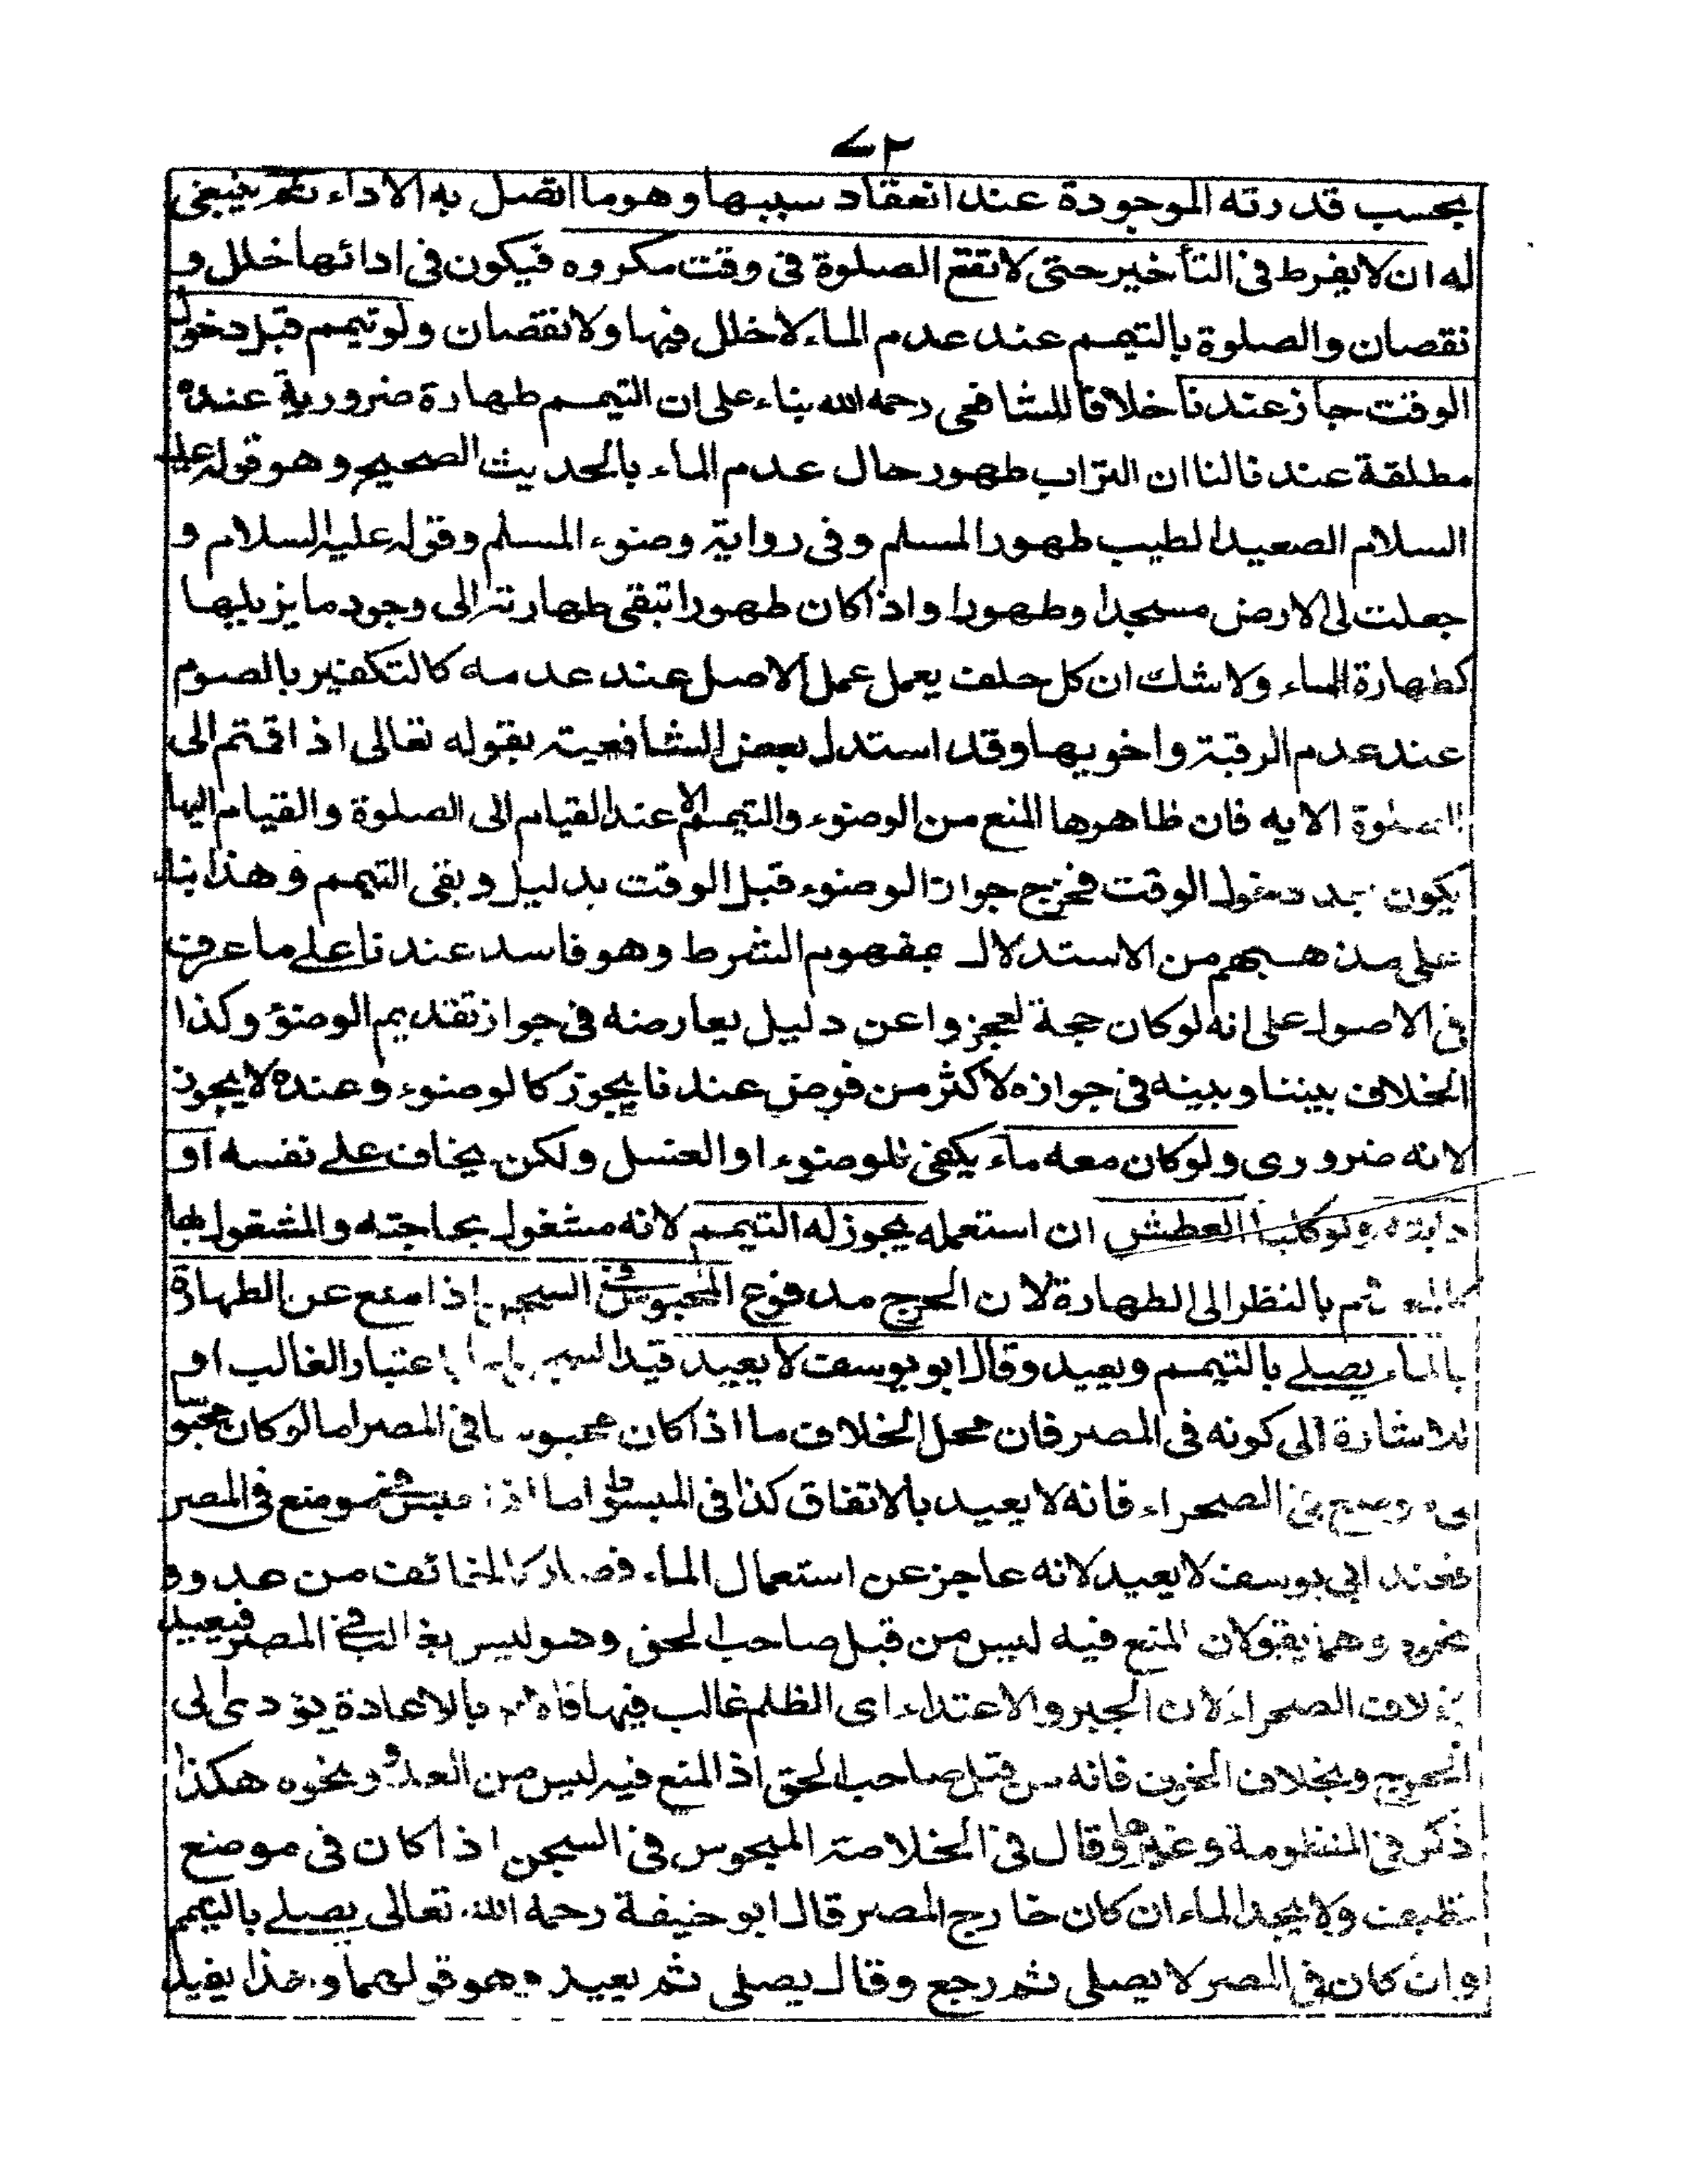 ٧٢
بحسب قدرته الموجودة عند انعقاد سببها وهو ما اتصل به الاداء ثم ينبغى
له ان لا يفرط فى التأخير حتى لا تقع الصلوة فى وقت مكروه فيكون فى ادائها خلل و
نقصان والصلوة بالتيمم عند عدم الماء لا خلل فيها ولا نقصان ولو تيمم قبل دخول
الوقت جاز عندنا خلافا للشافعى رحمه الله بناء على ان التيمم طهارة ضرورية عنده
مطلقة عند فالنا ان التراب طهور حال عدم الماء بالحديث الصحيح وهو قوله عليه
السلام الصعيد الطيب طهور المسلم وفى رواية وضوء المسلم وقوله عليه السلام و
جعلت لى الارض مسجدا وطهورا واذا كان طهورا تبقى طهارته الى وجود ما يزيلها
كطهارة الماء ولا شك ان كل خلف يعمل عمل الاصل عند عدمه كالتكفير بالصوم
عند عدم الرقبة واخويها وقد استدل بعض الشافعية بقوله تعالى اذا قمتم الى
الصلوة الايه فان ظاهرها المنع من الوضوء والتيمم الا عند القيام الى الصلوة والقيام اليها
يكون بعد دخول الوقت فخرج جواز الوضوء قبل الوقت بدليل وبقى التيمم وهذا بناء
على مذهبهم من الاستدلال بمفهوم الشرط وهو فاسد عندنا على ما عرف
فى الاصول على انه لو كان حجة لعجزوا عن دليل يعارضه فى جواز تقديم الوضؤ وكذا
الخلاف بيننا وبينه فى جوازه لاكثر من فرض عندنا يجوز كالوضوء وعنده لا يجوز
لانه ضرورى ولو كان معه ماء يكفى للوضوء او الغسل ولكن يخاف على نفسه او
دابته ولو كلبا العطش ان استعمله يجوز له التيمم لانه مشغول بحاجته والمشغول بها
كالمعدوم بالنظر الى الطهارة لان الحرج مدفوع المحبوس فى السجن اذا منع عن الطهارة
بالماء يصلى بالتيمم ويعيد وقال ابو يوسف لا يعيد قيد السجن اما باعتبار الغالب او
للاشارة الى كونه فى المصر فان محل الخلاف ما اذا كان محبوسا فى المصر اما لو كان محبوسا
فى موضع فى الصحراء فانه لا يعيد بالاتفاق كذا فى المبسوط اما اذا حبس فى موضع فى المصر
فعند ابى يوسف لا يعيد لانه عاجز عن استعمال الماء فصار كالخائف من عدو و
نحوه وهما يقولان المنع فيه ليس من قبل صاحب الحق وهو ليس بغالب فى المصر فيعيد
بخلاف الصحراء لان الجبر والاعتداء اى الظلم غالب فيها فالامر بالاعادة يؤدى الى
الحرج وبخلاف الخوف فانه من قبل صاحب الحق اذ المنع فيه ليس من العدو ونحوه هكذا
ذكر فى المنظومة وغيرها وقال فى الخلاصة المحبوس فى السجن اذا كان فى موضع
نظيف ولا يجد الماء ان كان خارج المصر قال ابو حنيفة رحمه الله تعالى يصلى بالتيمم
وان كان فى المصر لا يصلى ثم رجع وقال يصلى ثم يعيد وهو قولهما وهذا يفيد